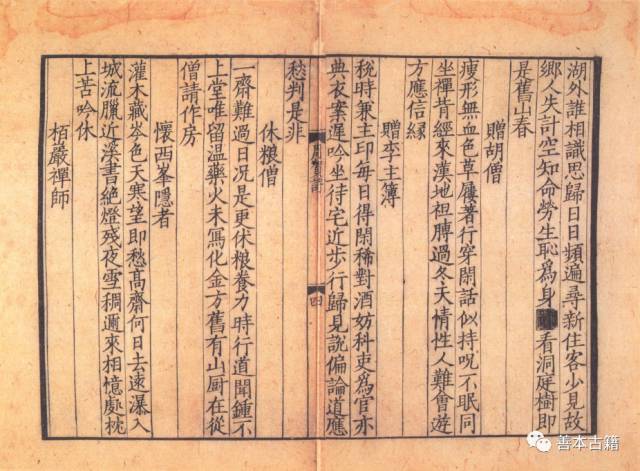 湖外誰相識思歸日日頻遍尋新住客少見故
鄉人失計空知命勞生恥為身看洞庭樹即
是舊山春
贈胡僧
瘦形無血色草屨著行穿閑話似持呪不眠同
坐禪背經來漢地袒膊過冬天情性人難會遊
方應信緣
贈李主簿
稅時兼主印每日得閑稀對酒妨科吏為官亦
典衣案遲吟坐待宅近步行歸見說偏論道應
愁判是非
四
休粮僧
一齋難過日况是更休粮養力時行道聞鍾不
上堂唯留温藥火未寫化金方舊有山厨在從
僧請作房
懷西峯隱者
灌木藏岑色天寒望即愁高齋何日去遠瀑入
城流臘近溪書絕燈殘夜雪稠邇來相憶處枕
上苦吟休
栢巖禪師
善本古籍